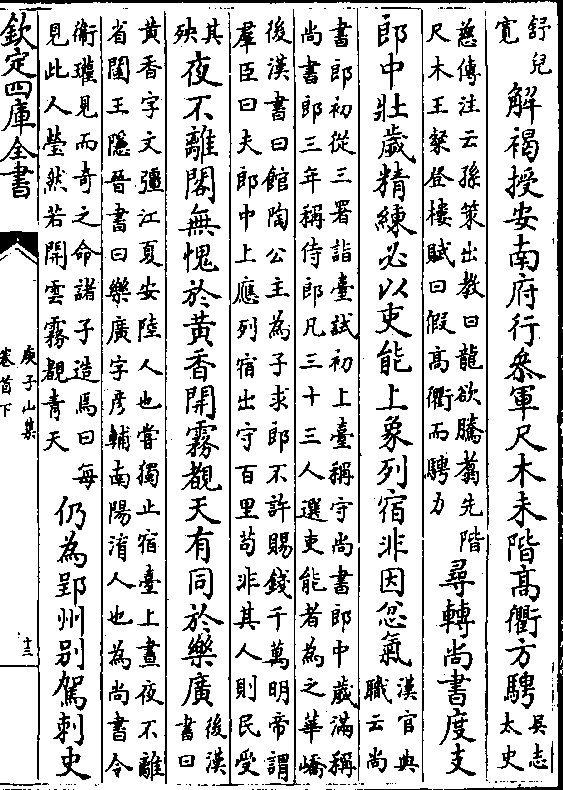 舒兒
寛
解褐授安南府行參軍尺木未階高衢方騁
吳志
太史
慈傳注云孫策出教曰龍欲騰翥先階
尺木王粲登樓賦曰假高衢而騁力
尋轉尚書度支
郎中壯歲精練必以吏能上象列宿非因忿氣
漢官典
職云尚
書郎初從三署詣臺試初上臺稱守尚書郎中歲滿稱
尚書郎三年稱侍郎凡三十三人選吏能者為之華嶠
後漢書曰館陶公主為子求郎不許賜錢千萬明帝謂
羣臣曰夫郎中上應列宿出守百里苟非其人則民受
其
殃
夜不離閣無愧於黃香開霧覩天有同於樂廣
後漢
書曰
黃香字文彊江夏安陸人也嘗獨止宿臺上晝夜不離
省闥王隱晉書曰樂廣字彦輔南陽淯人也為尚書令
衛瓘見而奇之命諸子造焉曰每
見此人瑩然若開雲霧覩青天
仍為郢州别駕刺史
欽定四庫全書
庾子山集
卷首下
十三